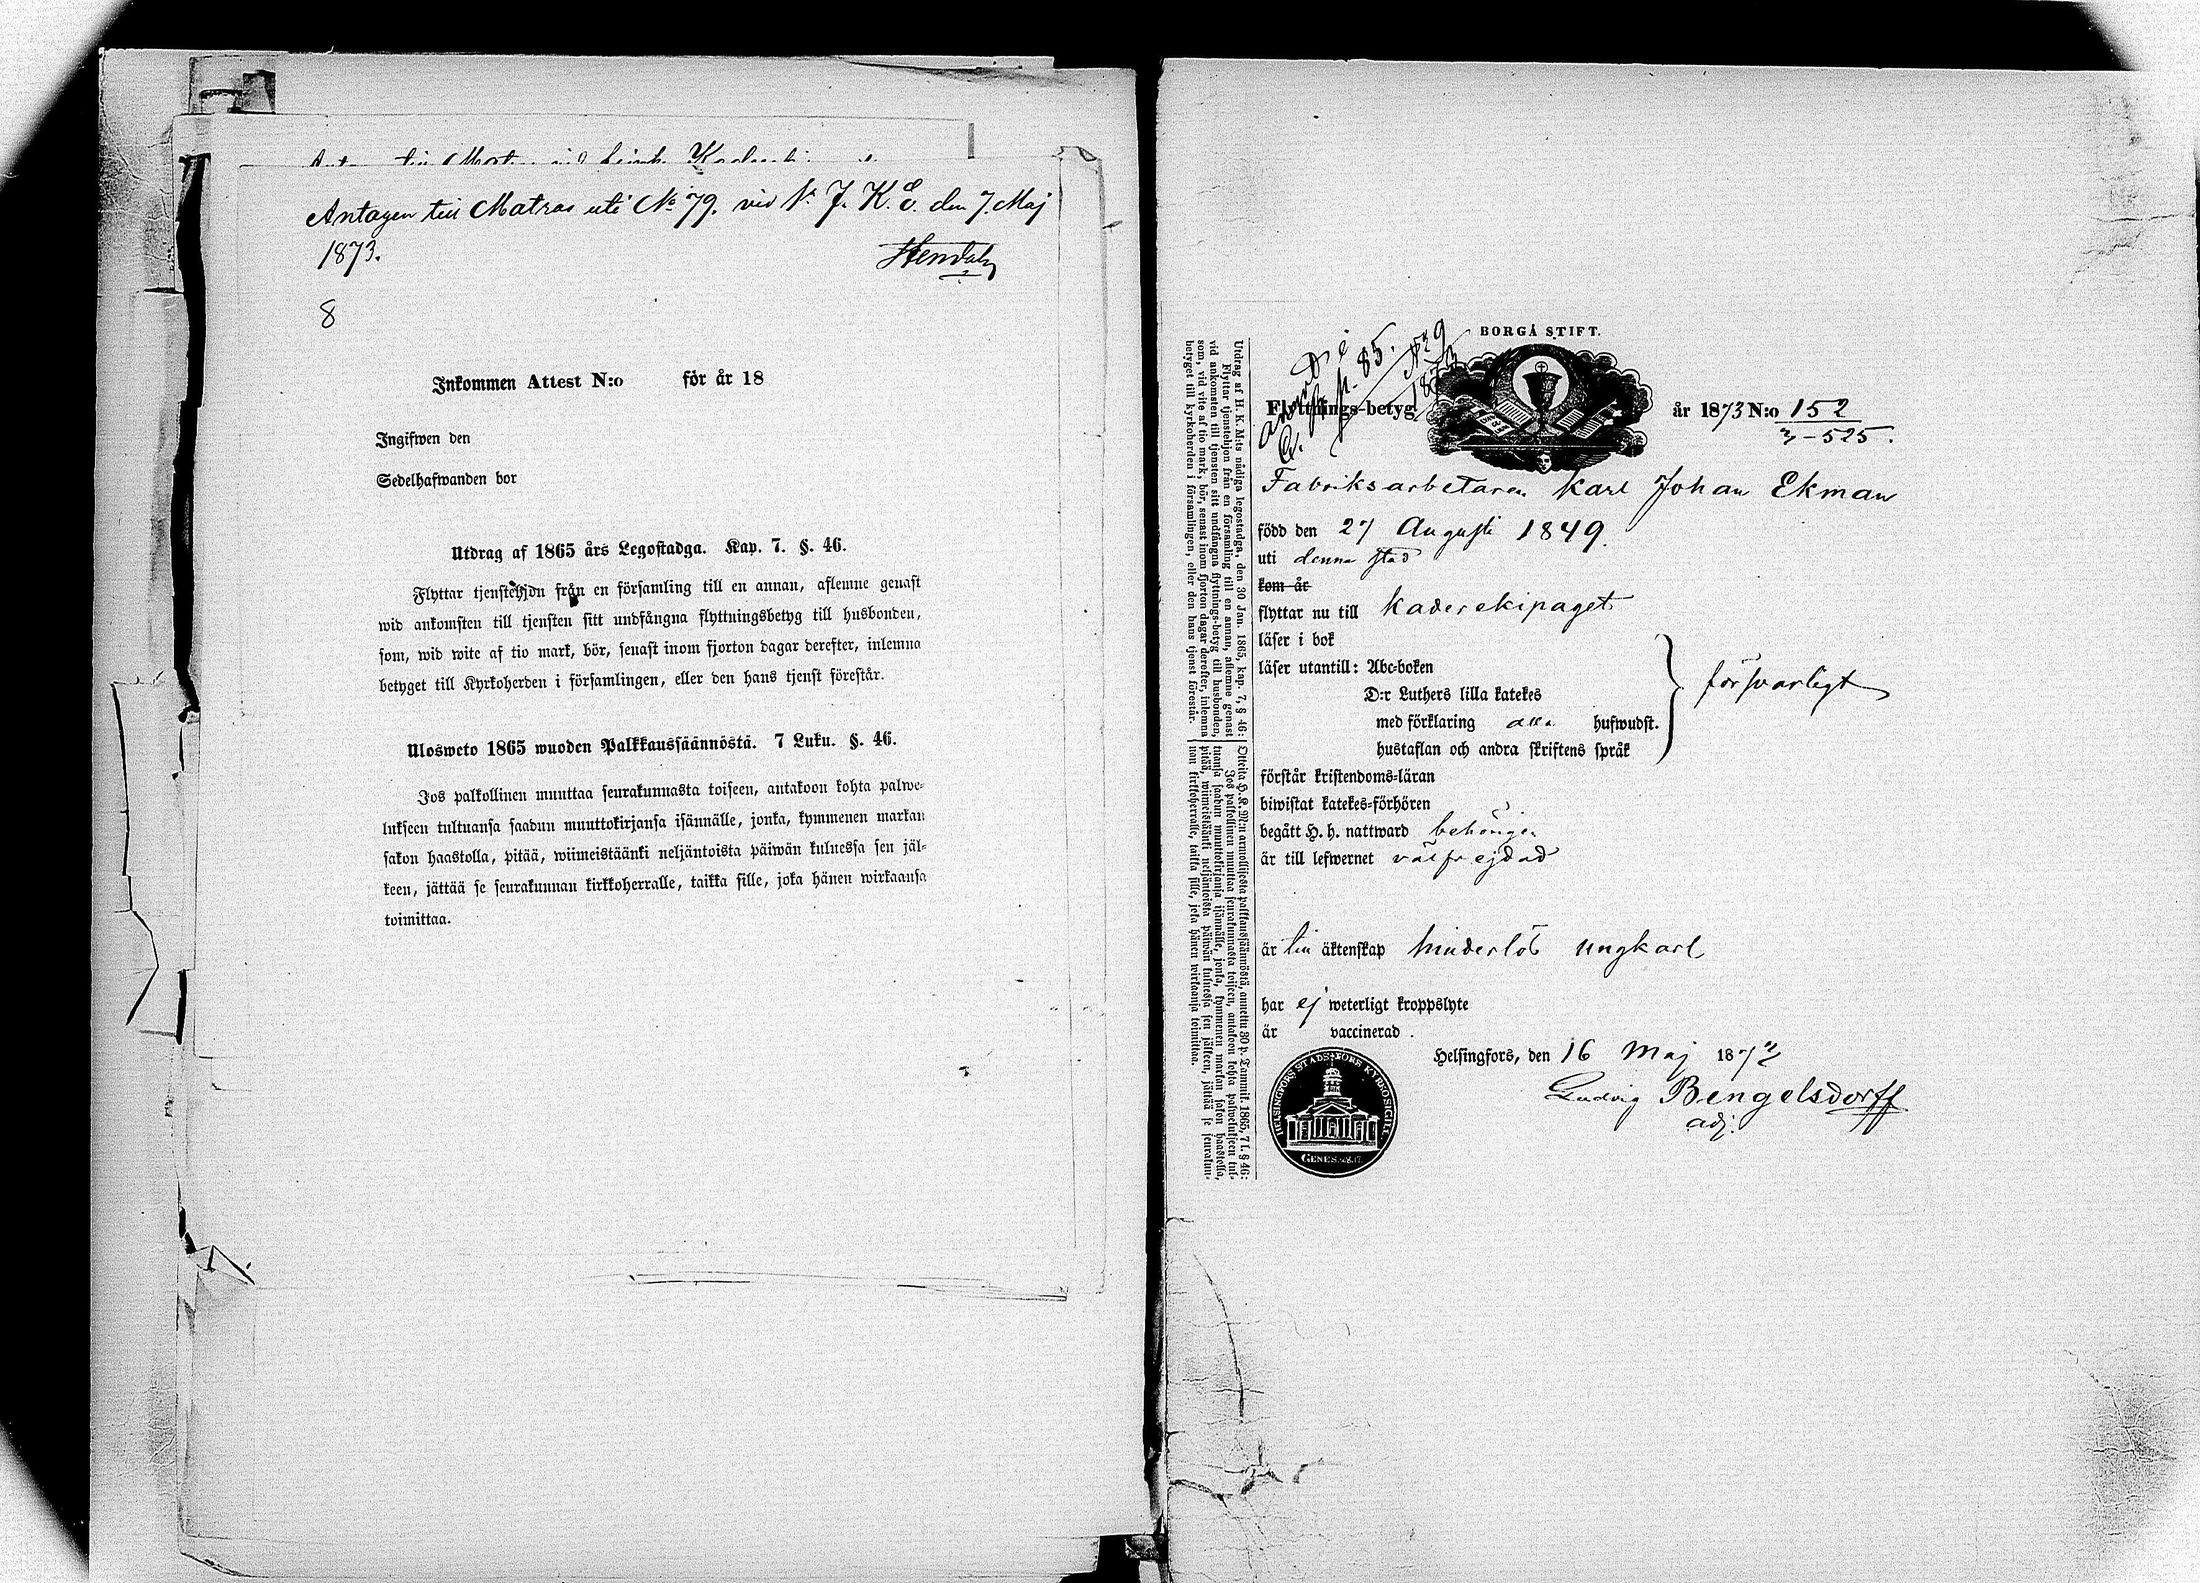 Antagen till Matros uti No 79. vid 1. F. K. E. den 7. Maj
1873.
8
Inkommen Attest N:o för år 18
Ingifwen den
Sedelhafwanden bor
Utdrag af 1865 års Legostadga. Kap. 7. §. 46.
Flyttar tjenstehjon från en församling till en annan, aflemne genast
wid ankomsten till tjensten sitt undfångna flyttningsbetyg till husbonden,
som, wid wite af tio mark, bör, senast inom fjorton dagar derefter, inlemna
betyget till Kyrkoherden i församlingen, eller den hans tjenst förestår.
Ulosweto 1865 wuoden Palkkaussäännöstä. 7 Luku. §. 46.
Jos palkollinen muuttaa seurakunnasta toiseen, antakoon kohta palwe-
lukseen tultuansa saadun muuttokirjansa isännälle, jonka, kymmenen markan
sakon haastolla, pitää, wiimeistäänki neljäntoista päiwän kuluessa sen jäl-
keen, jättää se seurakunnan kirkkoherralle, taikka sille, joka hänen wirkaansa
toimittaa.
Utdrag af H. K. M:ts nådiga legostadga, den 30 Jan. 1865, kap. 7, § 46:
Flyttar tjenstehjon från en församling till en annan, aflemne genast
vid ankomsten till tjensten sitt undfångna flyttnings-betyg till husbonden,
som, vid vite af tio mark, bör, senast inom fjorton dagar derefter, inlemna
betyget till kyrkoherden i församlingen, eller den hans tjenst förestår.
Otteita H. K. M:n armollisesta palkkaussäännöstä, annettu 30 p. Tammik. 1865, 7 l. § 46:
Jos palkollinen muuttaa seurakunnasta toiseen, antakoon kohta palwelukseen tul-
tuansa saadun muuttokirjansa isännälle, jonka, kymmenen markan sakon haastolla,
pitää, wiimeistäänki neljäntoista päiwän kuluessa sen jälkeen, jättää se seurakun-
nan kirkkoherralle, taikka sille, joka hänen wirkaansa toimittaa.
BORGÅ STIFT.
p. 85. No 9
1873
Flyttnings-betyg år 1873 N:o 152
3-525.
Fabriksarbetaren Karl Johan Ekman
född den 27 Augusti 1849.
uti denna stad
kom år
flyttar nu till Kaderekipaget
läser i bok
läser utantill: Abc-boken
D:r Luthers lilla katekes
med förklaring alla hufwudst.
hustaflan och andra skriftens språk
försvarligt
förstår kristendoms-läran
biwistat katekes-förhören
begått H. h. nattward behörigen
är till lefwernet välfrejdad
är till äktenskap hinderlös ungkarl
har ej weterligt kroppslyte
är vaccinerad.
Helsingfors, den 16 Maj 1872
Ludvig Bengelsdorff
adj.
HELSINGFORS STADS FÖRS KYRKOSIGILL
GENES. 28. 17.